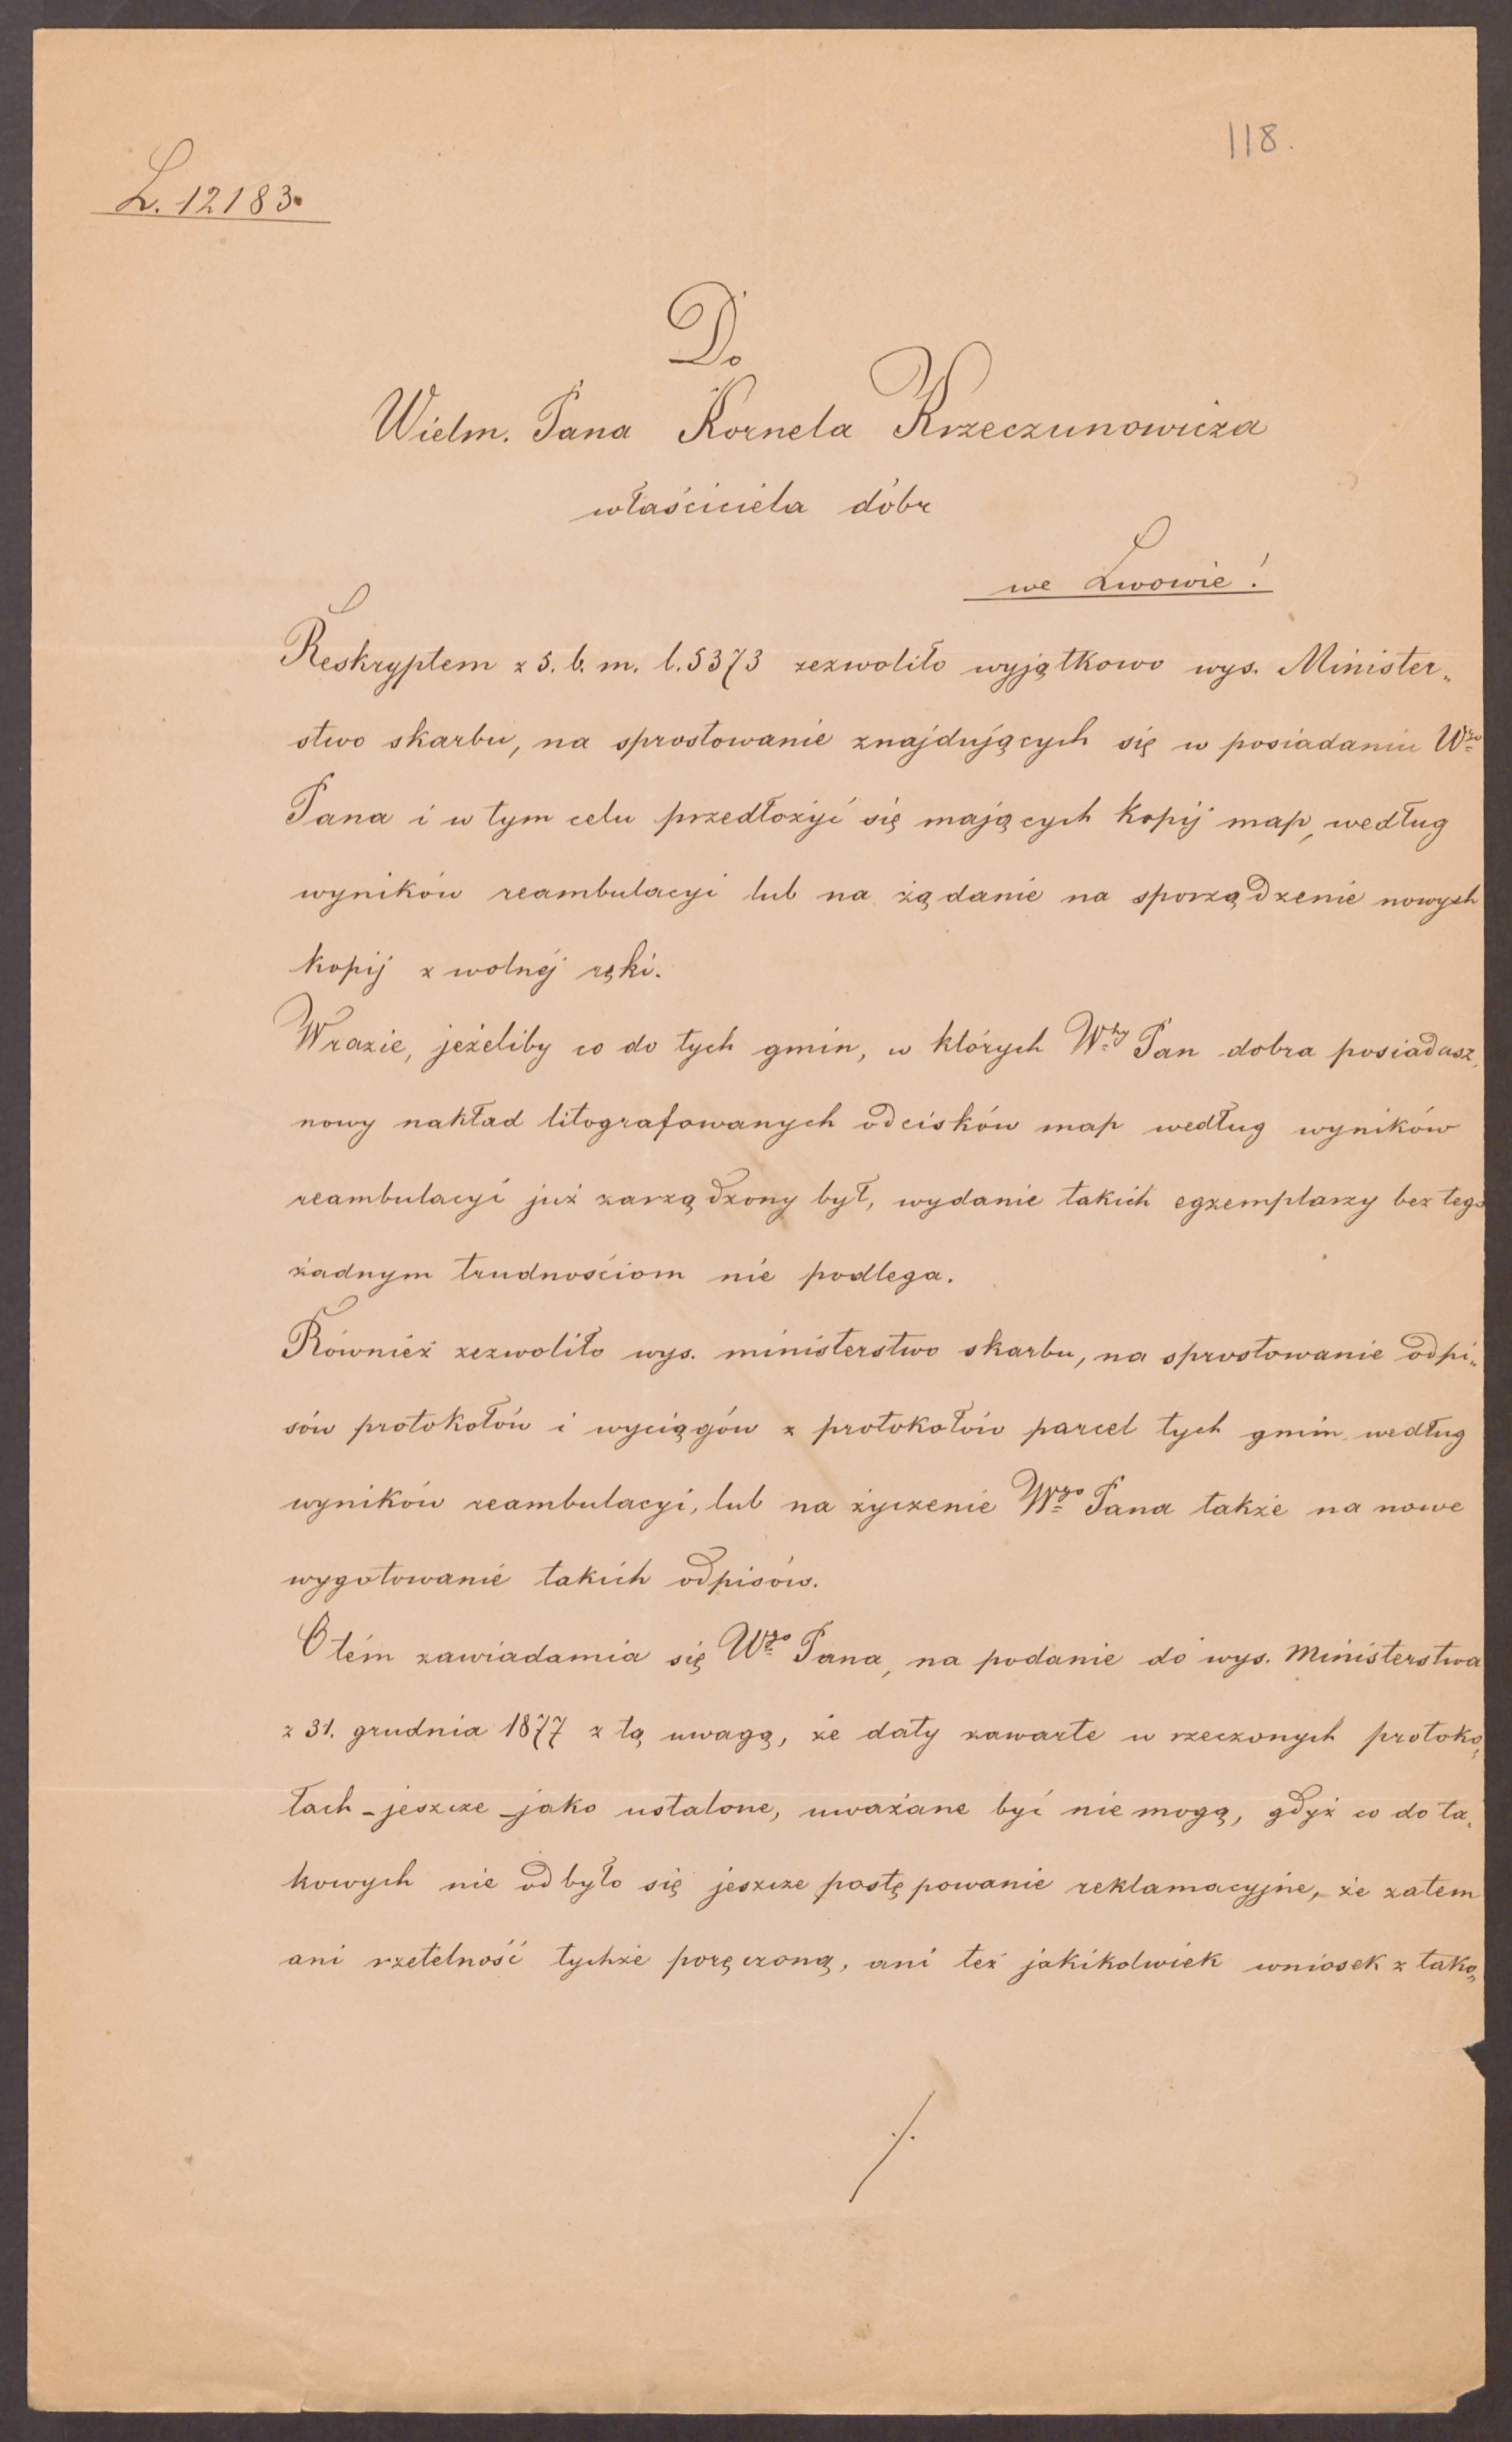 118.
L. 12183.
Do
Wielm. Pana Kornela Krzeczunowicza
właściciela dóbr
we Lwowie!
Reskryptem z 5. b. m. l. 5373 zezwoliło wyjątkowo wys. Minister„
stwo skarbu, na sprostowanie znajdujących się w posiadaniu Wgo
Pana i w tym celu przedłożyć się mających kopij map, według
wyników reambulacyi lub na żądanie na sporządzenie nowych
kopij z wolnéj ręki.
W razie, jeżeliby co do tych gmin, w których Wny Pan dobra posiadasz,
nowy nakład litografowanych odcisków map według wyników
reambulacyi już zarządzony był, wydanie takich egzemplarzy bez tego
żadnym trudnościom nie podlega.
Również zezwoliło wys. ministerstwo skarbu, na sprostowanie odpi„
sów protokołów i wyciągów z protokołów parcel tych gmin według
wyników reambulacyi, lub na życzenie Wgo Pana także na nowe
wygotowanie takich odpisów.
O tém zawiadamia się Wgo Pana, na podanie do wys. Ministerstwa
z 31. grudnia 1877 z tą uwagą, że daty zawarte w rzeczonych protoko„
łach - jeszcze - jako ustalone, uważane być nie mogą, gdyż co do ta„
kowych nie odbyło się jeszcze postępowanie reklamacyjne, że zatem
ani rzetelność tychże poręczoną, ani też jakikolwiek wniosek z tako„
./.